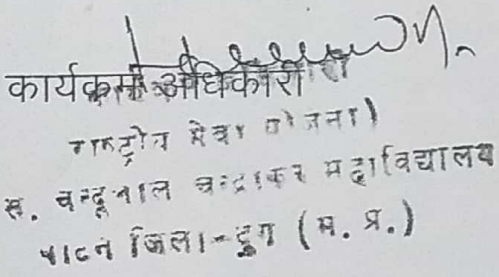 कार्यक्रम अधिकारी
राष्ट्रीय सेवा योजना)
स. चन्दूलाल चन्द्राकर महाविद्यालय
पाटन जिला-दुग (म. प्र.)